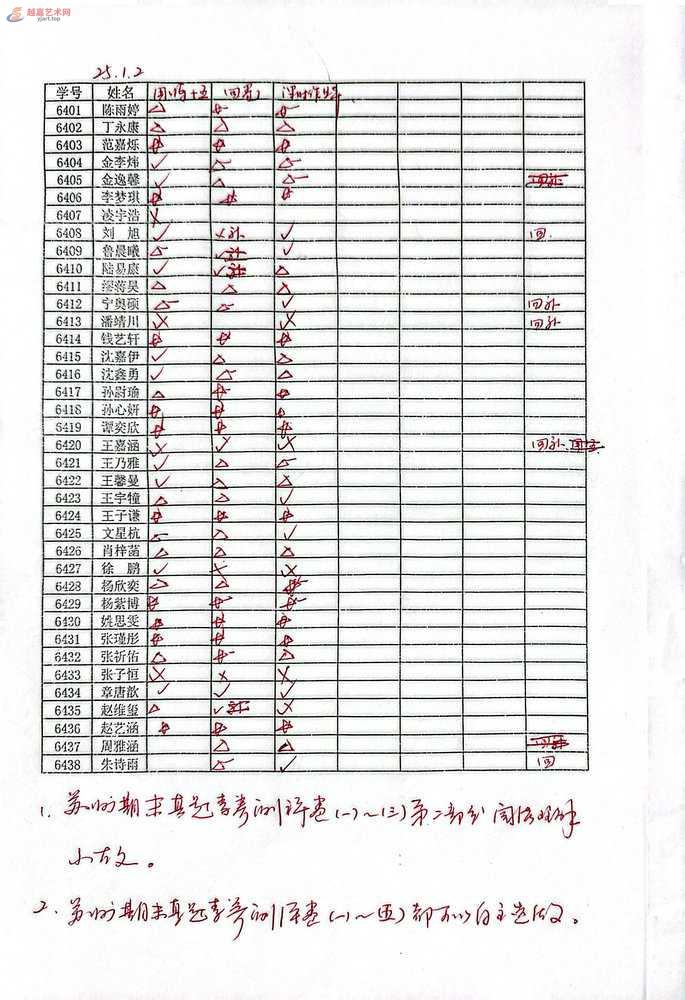 越嘉艺术网
yjart.top
25.1.2
学号 姓名 课时作业
6401 陈雨婷 △
6402 丁永康 △ △ △
6403 范嘉烁
6404 金李炜 ✓
6405 金逸馨 ✓ △
6406 李梦琪
6407 凌宇浩 ✗
6408 刘旭 ✓ ✗补 ✓ 回
6409 鲁晨曦 △ ✓补 ✓
6410 陆易康 ✓ ✓补 △
6411 昊 △ △ △
6412 宁奥硕 ✓ 回补
6413 潘靖川 ✗ ✗ 回补
6414 钱艺轩
6415 沈嘉伊 ✓ △ △
6416 沈鑫勇 ✓ △
6417 孙尉瑜 △
6418 孙心妍
6419 谭奕欣
6420 王嘉涵 ✗ ✓ ✗ 回补
6421 王乃雅 ✓ △
6422 王馨曼 ✓ △ △
6423 王宇犝 △ △ ✓
6424 王子谦
6425 文星杭 △ ✓
6426 肖梓菡 △ △ △
6427 徐鹏 ✓ ✗ ✗
6428 杨欣奕 △ △
6429 杨紫博
6430 姚思雯
6431 张瑾彤
6432 张祈佑 △ △
6433 张子恒 ✗ ✗ ✗
6434 章唐歆 ✓ ✓ ✓
6435 赵维玺 △ ✓补 ✗
6436 赵艺涵
6437 周雅涵 △ △
6438 朱诗雨 ✓ 回
1. 苏州期末真题素养训练卷(一)~(三)第二部分 阅读理解
小古文。
2. 苏州期末真题素养训练卷(一)~(五)都可以自主选做。